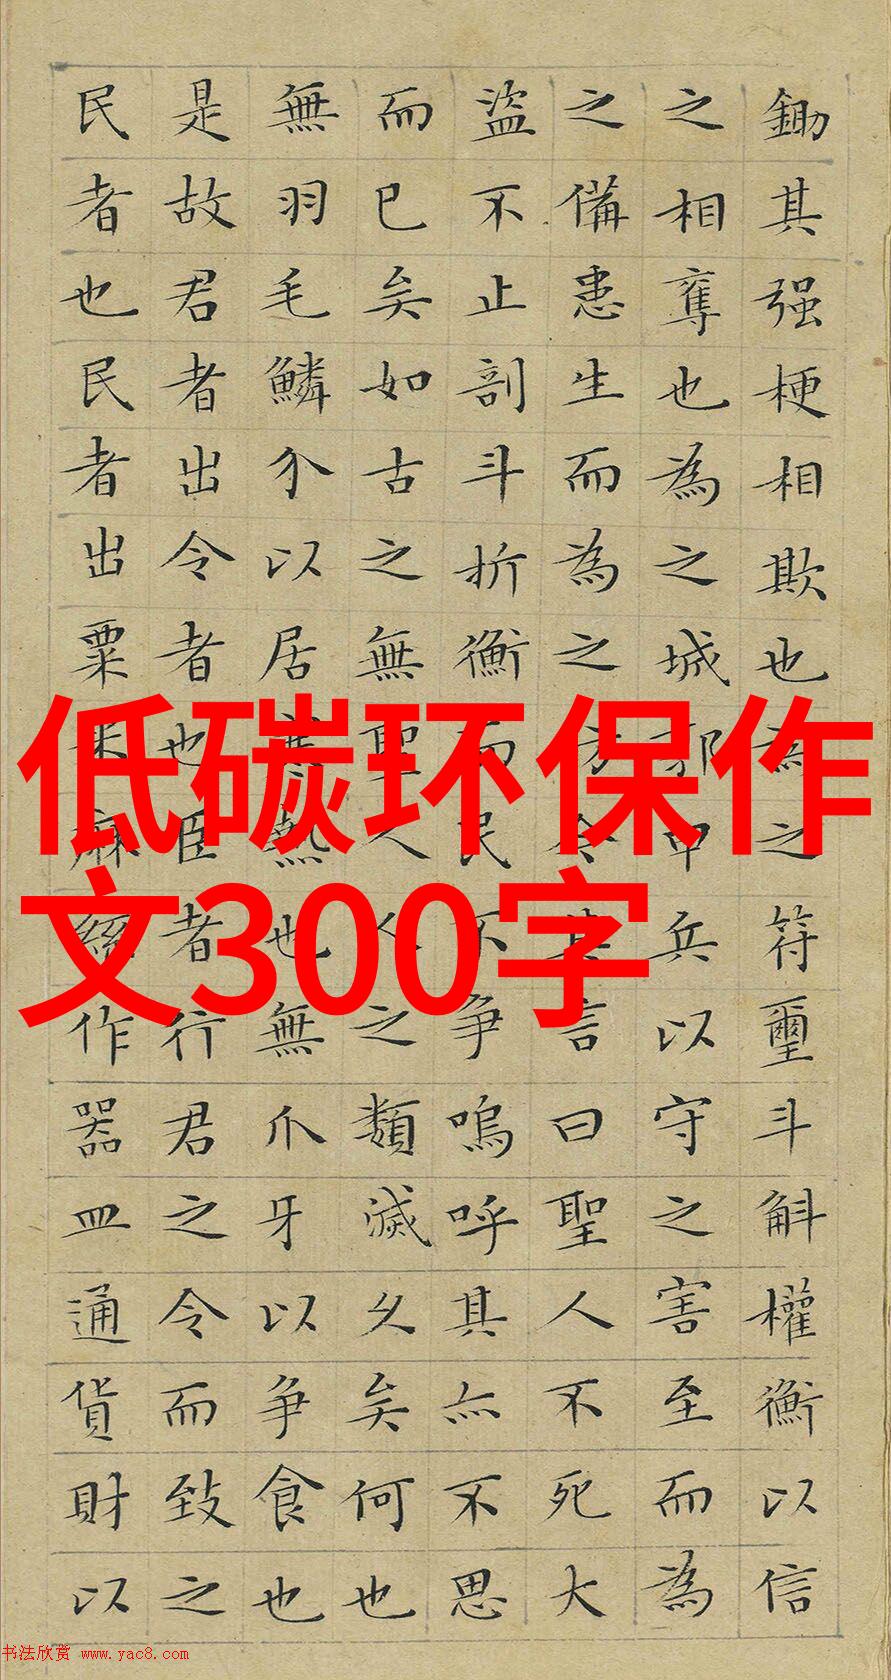 鋤其强梗相欺也為之符璽斗斛權衡以信
之相奪也為之城郭甲兵以守之害至而為
之備患生而為之防今其言曰聖人不死大
盜不止剖斗折衡而民不爭嗚呼其亦不思
而已矣如古之無聖人人之類滅久矣何也
無羽毛鱗介以居寒熱也無爪牙以爭食也
是故君者出令者也臣者行君之令而致之
民者也民者出粟米麻絲作器皿通貨財以
低碳环保作
文300字
书法欣赏 www.yac8.com